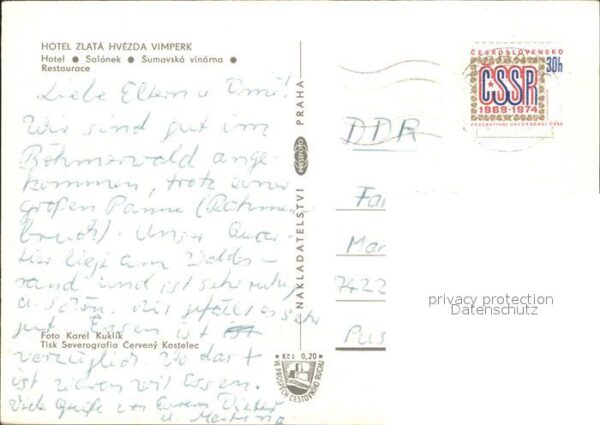 HOTEL ZLATÁ HVĚZDA VIMPERK
Hotel ● Salónek ● Šumavská vinárna ●
Restaurace
Liebe Eltern u. Omi!
Wir sind gut im
Böhmerwald ange-
kommen, trotz einer
großen Panne (Rahmen
bruch). Unser Quar-
tier liegt am Waldes-
rand und ist sehr ruhig
u. schön. Wir gefällt es sehr
gut. Essen ist
vorzüglich. Wo das
ist zieren wir Essen.
Viele Grüße von Eurem Dieter
u. Martina
Foto Karel Kuklík
Tisk Severografia Červený Kostelec
NAKLADATELSTVÍ PRESSFOTO PRAHA
Kčs 0,20
VE PROSPĚCH CESTOVNÍHO RUCHU
ČESKOSLOVENSKO
30h
ČSSR
1969-1974
DDR
Fa
Mar
7422
Pus
privacy protection
Datenschutz